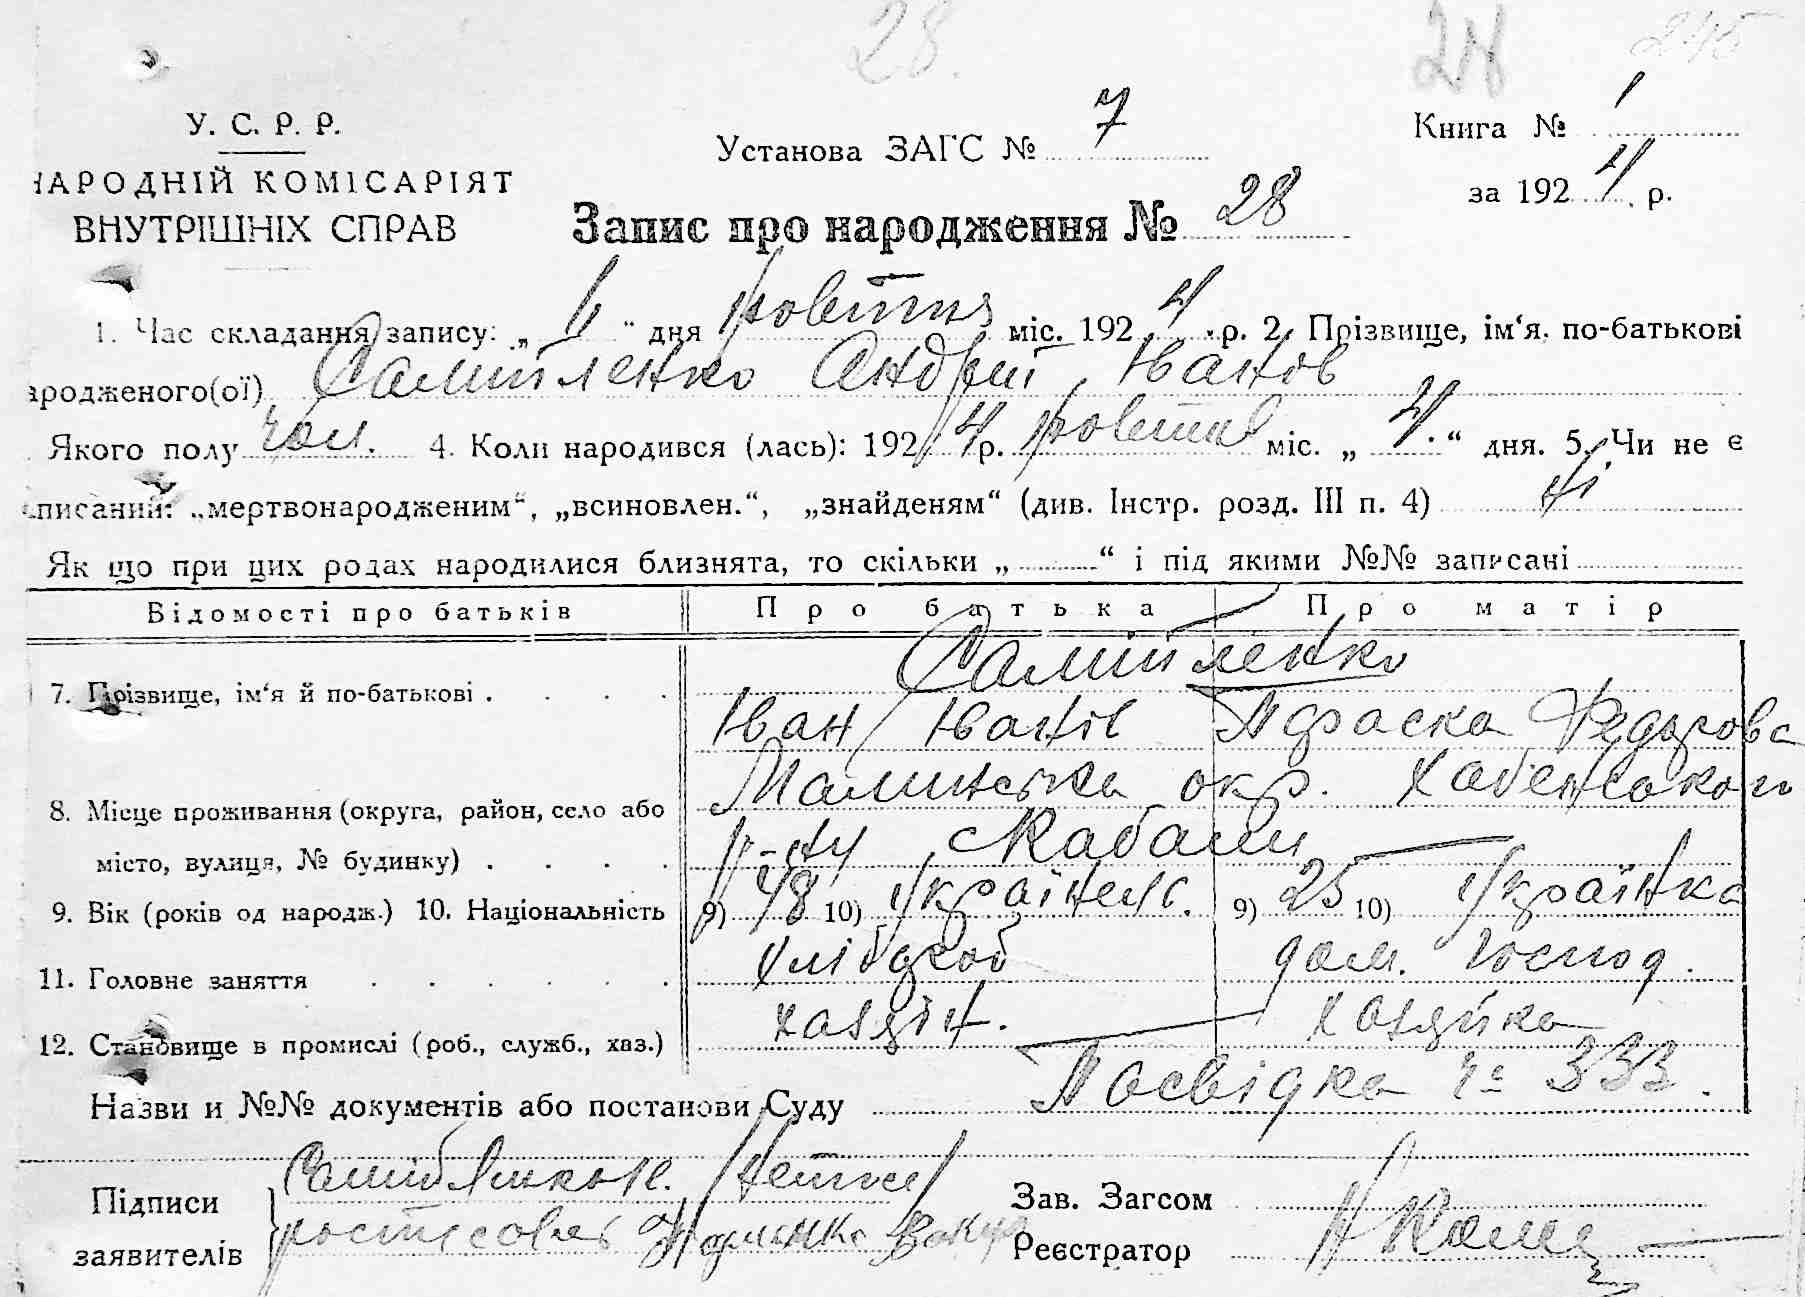 28. 28 245
У. С. Р. Р.
НАРОДНІЙ КОМІСАРІЯТ
ВНУТРІШНІХ СПРАВ
Установа ЗАГС № 7
Книга № 1
за 1924 р.
Запис про народження № 28
1. Час складання запису: „6“ дня жовтня міс. 1924 р. 2. Прізвище, ім‘я, по-батькові
ародженого(ої) Самійленко Андрій Іванів
Якого полу чол. 4. Коли народився (лась): 1924 р. жовтня міс. „4.“ дня. 5. Чи не є
аписаний: „мертвонародженим“, „всиновлен.“, „знайденям“ (див. Інстр. розд. III п. 4) ні
Як що при цих родах народилися близнята, то скільки „ “ і під якими №№ записані
Відомості про батьків Про батька Про матір
Самійленко
7. Прізвище, ім‘я й по-батькові . . . . Іван Іванів Параска Федорова
8. Місце проживання (округа, район, село або Малинська окр. Хабенського
місто, вулиця, № будинку) . . . . р-ну с Кабани
9. Вік (років од народж.) 10. Національність 9) 48 10) Українець. 9) 25 10) Українка
11. Головне заняття . . . . . . хлібороб дом. господ.
12. Становище в промислі (роб., служб., хаз.) хазяїн. хазяйка
Назви и №№ документів або постанови Суду Посвідка № 333.
Підписи
заявителів
Зав. Загсом
Реєстратор